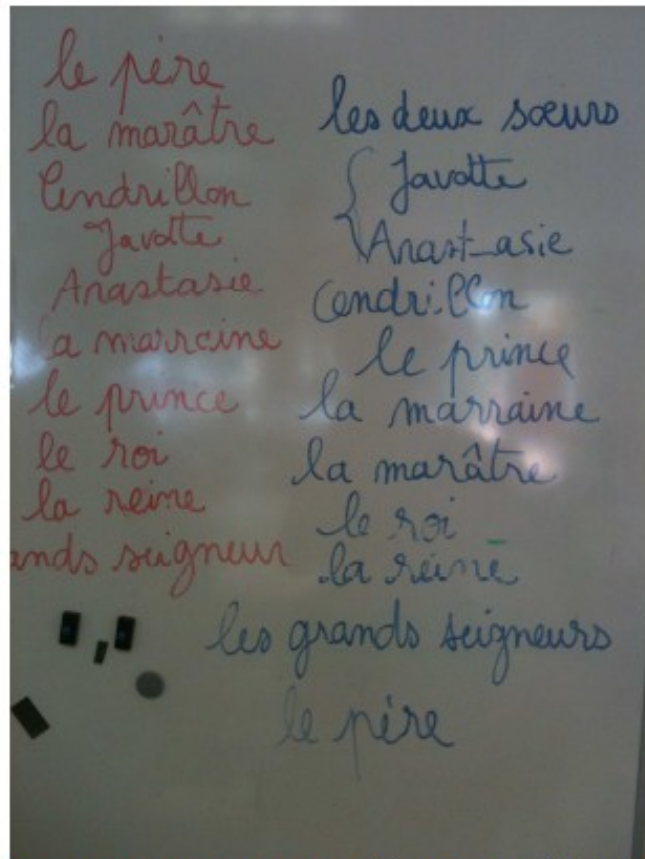 le père
la marâtre
Cendrillon
Javotte
Anastasie
la marraine
le prince
le roi
la reine
ands seigneur
les deux sœurs
Javotte
Anastasie
Cendrillon
le prince
la marraine
la marâtre
le roi
la reine
les grands seigneurs
le père